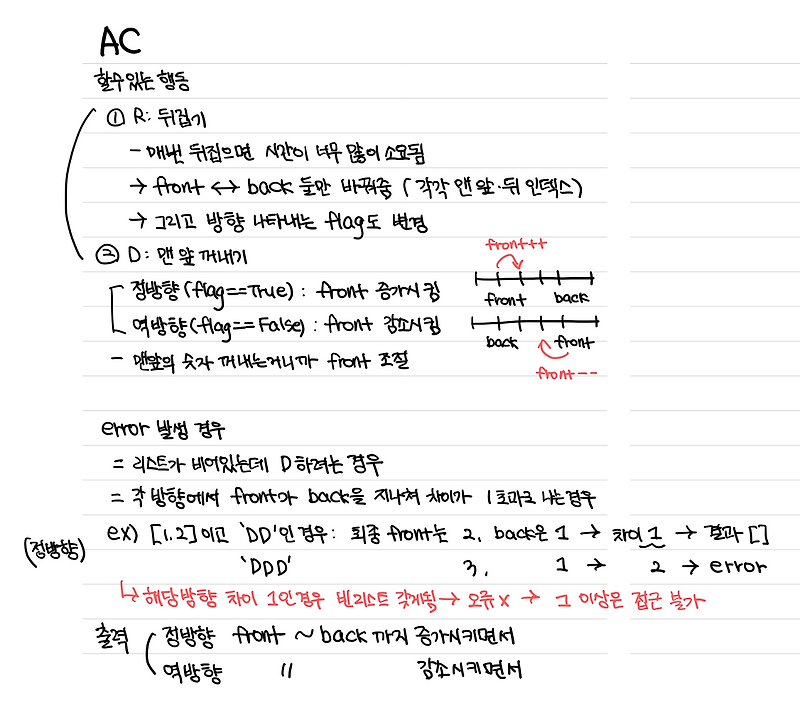 AC
할수있는 행동
① R: 뒤집기
- 매번 뒤집으면 시간이 너무 많이 소요됨
→ front ↔ back 둘만 바꿔줌 (각각 맨 앞·뒤 인덱스)
→ 그리고 방향 나타내는 flag도 변경
② D: 맨 앞 꺼내기
front++
정방향 (flag==True) : front 증가시킴
front back
역방향 (flag==False) : front 감소시킴
back front
- 맨앞의 숫자 꺼내는거니까 front 조절
front--
error 발생 경우
= 리스트가 비어있는데 D하려는 경우
= 각 방향에서 front가 back을 지나쳐 차이가 1초과로 나는경우
(정방향) ex) [1,2]이고 'DD'인 경우: 최종 front는 2, back은 1 → 차이 1 → 결과 []
'DDD' 3, 1 → 2 → error
↳ 해당방향 차이 1인경우 빈리스트 갖게됨 → 오류 x → 그 이상은 접근 불가
출력 정방향 front ~ back 까지 증가시키면서
역방향 〃 감소시키면서